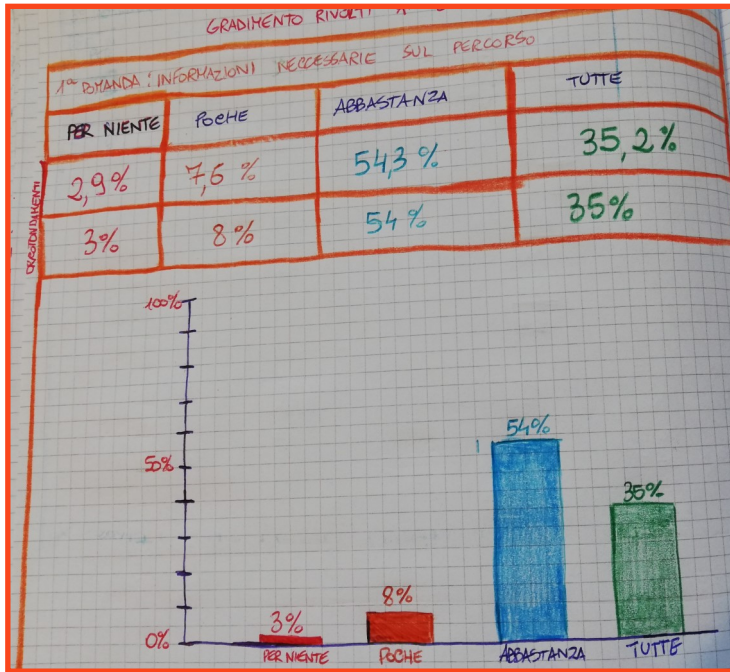 GRADIMENTO RIVOLTI
1ª DOMANDA: INFORMAZIONI NECCESSARIE SUL PERCORSO
PER NIENTE POCHE ABBASTANZA TUTTE
2,9% 7,6% 54,3% 35,2%
ARROTONDAMENTI
3% 8% 54% 35%
100%
50%
0%
3% 8% 54% 35%
PER NIENTE POCHE ABBASTANZA TUTTE